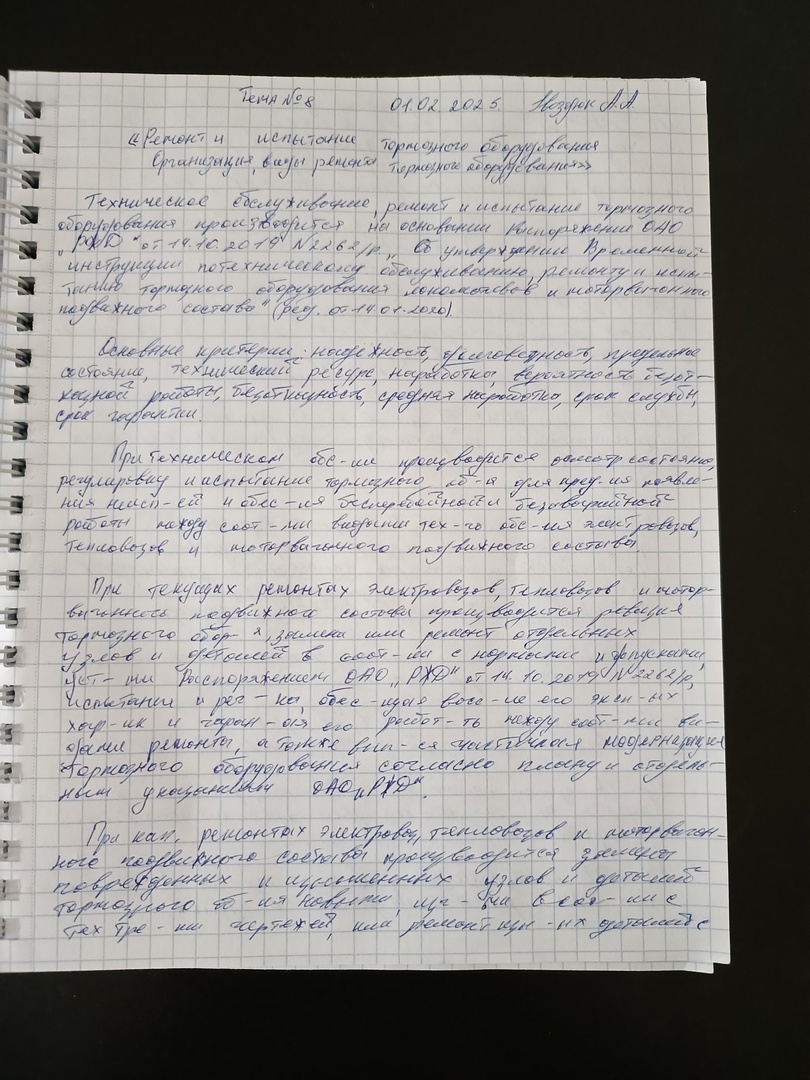 Тема №8 01.02.2025. Наздрюк А.А.
«Ремонт и испытание тормозного оборудования
Организация, виды ремонта тормозного оборудования»
Техническое обслуживание, ремонт и испытание тормозного
оборудования производится на основании Распоряжение ОАО
„РЖД" от 14.10.2019 №2262/р „Об утверждении Временной
инструкции по техническому обслуживанию, ремонту и испы-
танию тормозного оборудования локомотивов и моторвагонного
подвижного состава" (ред. от 14.01.2020).
Основные критерии: надежность, долговечность, предельное
состояние, технический ресурс, наработка, вероятность безот-
казной работы, безотказность, средняя наработка, срок службы,
срок гарантии.
При техническом обс-ии производится осмотр состояния,
регулировку и испытание тормозного об-я для пред-ия появле-
ния неисп-ей и обес-ия бесперебойной и безаварийной
работы между соот-ми видами тех-го обс-ия электровозов,
тепловозов и моторвагонного подвижного состава.
При текущих ремонтах электровозов, тепловозов и мотор-
вагонного подвижного состава производится ревизия
тормозного обор-я, замена или ремонт отдельных
узлов и деталей в соот-ии с нормами и допусками,
уст-ми Распоряжением ОАО „РЖД" от 14.10.2019 №2262/р,
испытание и рег-ка, обес-щая восс-ие его эксп-ых
хар-ик и гаран-ая его работ-ть между соот-ми ви-
дами ремонта, а также вып-ся частичная модернизация
тормозного оборудования согласно плану и отдель-
ным указаниям ОАО „РЖД".
При кап. ремонтах электровоз., тепловозов и моторвагон-
ного подвижного состава производится замена
поврежденных и изношенных узлов и деталей
тормозного об-ия новыми, изг-ми в соот-ии с
тех тре-ми чертежей, или ремонт изн-ых деталей с